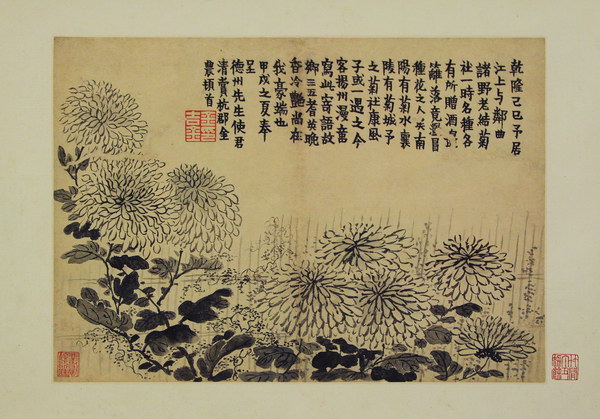 乾隆己巳予居
江上与鄰曲
諸野老結菊
社一時名種各
有所贈酒
籬落竟
種花之人矣南
陽有菊水襄
陵有菊城予
之菊社康風
子或一過之今
客揚州漫畫
寫此寄語故
鄉三五者英晚
香冷艷尚在
我豪端也
甲戌之夏奉
呈
德州先生使君
清賞杭郡金
農頓首